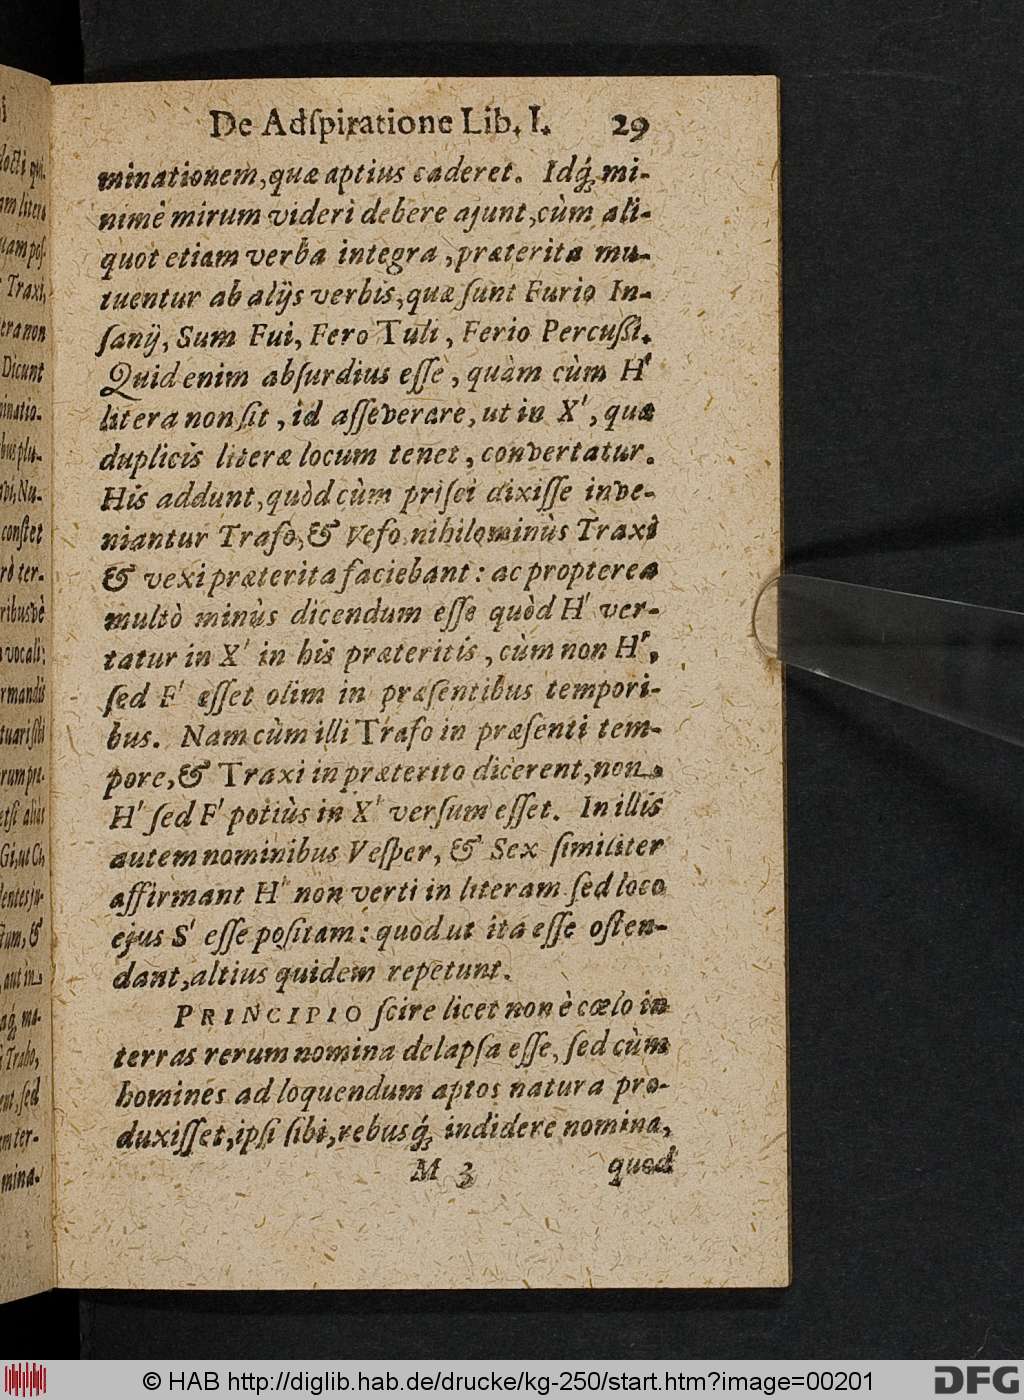 De Adſpiratione Lib. I. 29
minationem, quæ aptius caderet. Idq́; mi-
nimè mirum videri debere ajunt, cùm ali-
quot etiam verba integra, præterita mu-
tuentur ab alijs verbis, quæ ſunt Furio In-
ſanij, Sum Fui, Fero Tuli, Ferio Percuſſi.
Quid enim abſurdius eſſe, quàm cùm H'
litera non ſit, id aſſeverare, ut in X', quæ
duplicis literæ locum tenet, convertatur.
His addunt, quòd cùm priſci dixiſſe inve-
niantur Trafo, & Vefo nihilominùs Traxi
& vexi præterita faciebant: ac propterea
multò minùs dicendum eſſe quòd H' ver-
tatur in X' in his præteritis, cùm non H',
ſed F' eſſet olim in præſentibus tempori-
bus. Nam cùm illi Trafo in præſenti tem-
pore, & Traxi in præterito dicerent, non
H' ſed F' potiùs in X' verſum eſſet. In illis
autem nominibus Veſper, & Sex ſimiliter
affirmant H' non verti in literam ſed loco
ejus S' eſſe poſitam: quod ut ita eſſe oſten-
dant, altius quidem repetunt.
PRINCIPIO ſcire licet non è cœlo in
terras rerum nomina delapſa eſſe, ſed cùm
homines ad loquendum aptos natura pro-
duxiſſet, ipſi ſibi, rebusq́; indidere nomina,
M 3 quod
© HAB http://diglib.hab.de/drucke/kg-250/start.htm?image=00201
DFG